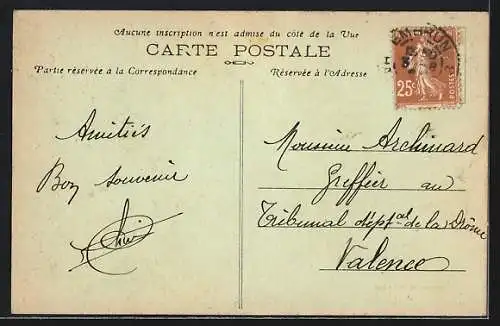 Aucune inscription n'est admise du côté de la Vue
CARTE POSTALE
Partie réservée à la Correspondance
Réservée à l'Adresse
EMBRUN
25c
POSTES
Amitiés
Bon souvenir
Monsieur Archinard
Greffier au
Tribunal dépt.al de la Drôme
Valence